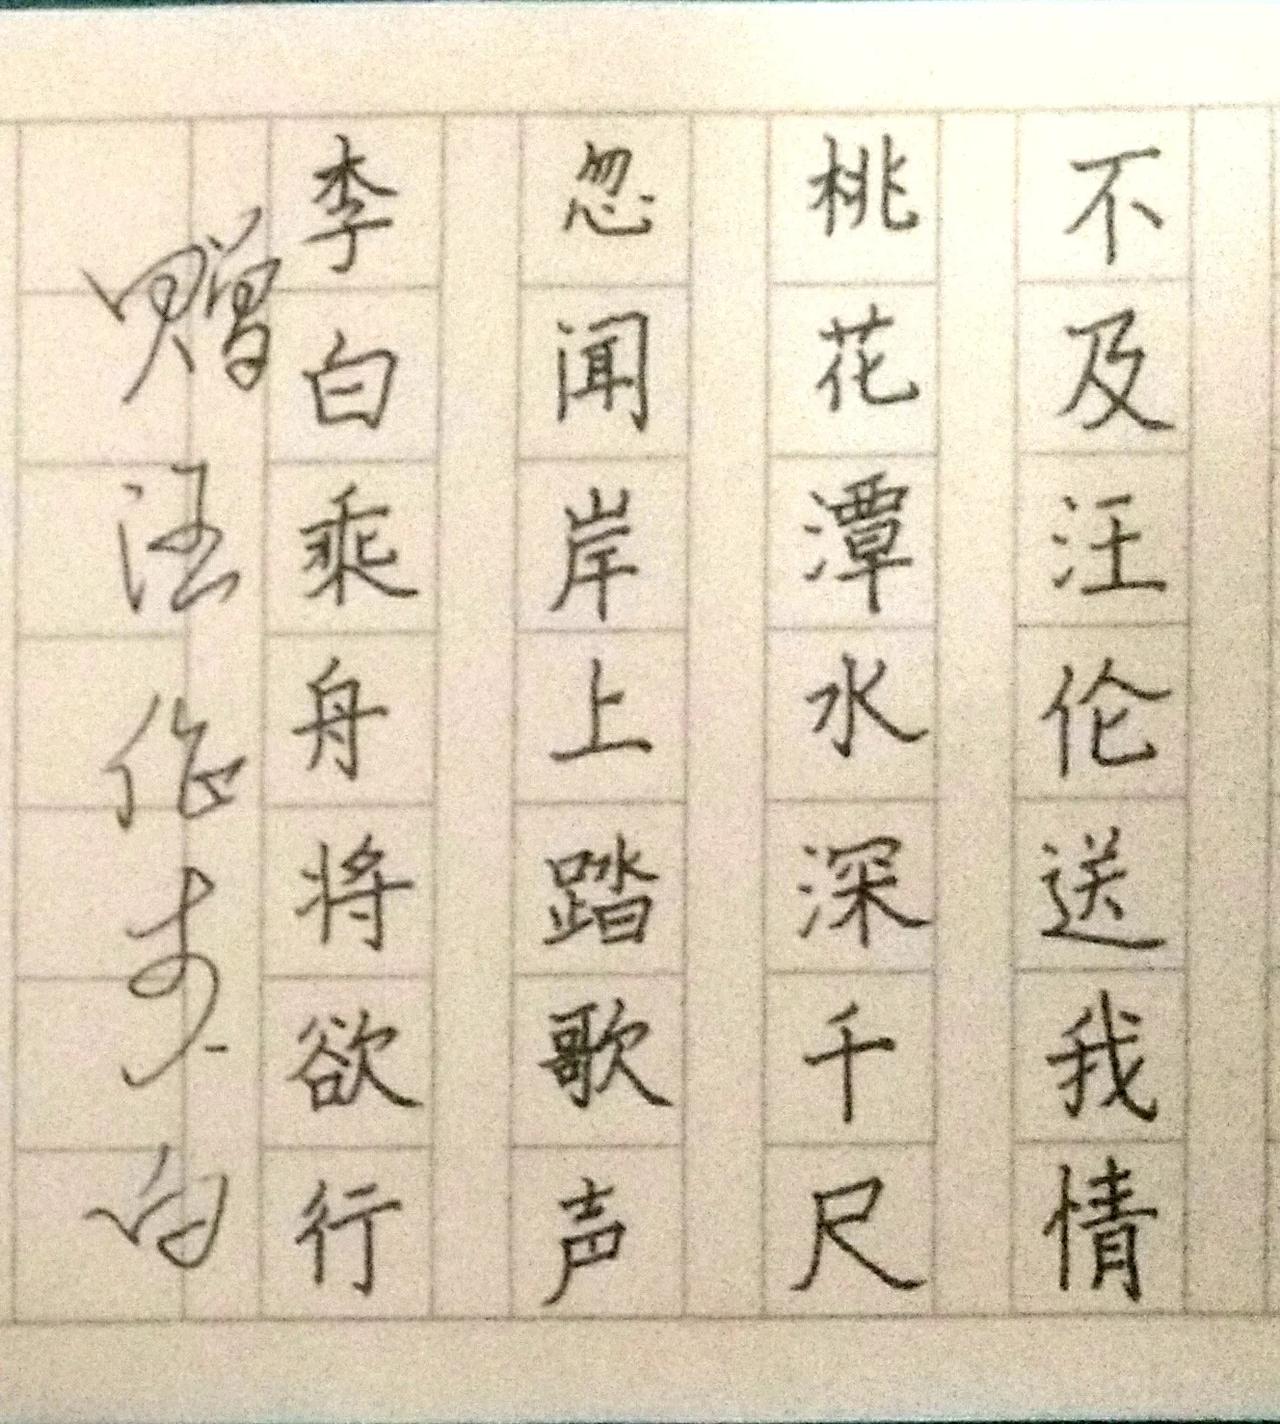 赠汪伦李白
李白乘舟将欲行
忽闻岸上踏歌声
桃花潭水深千尺
不及汪伦送我情